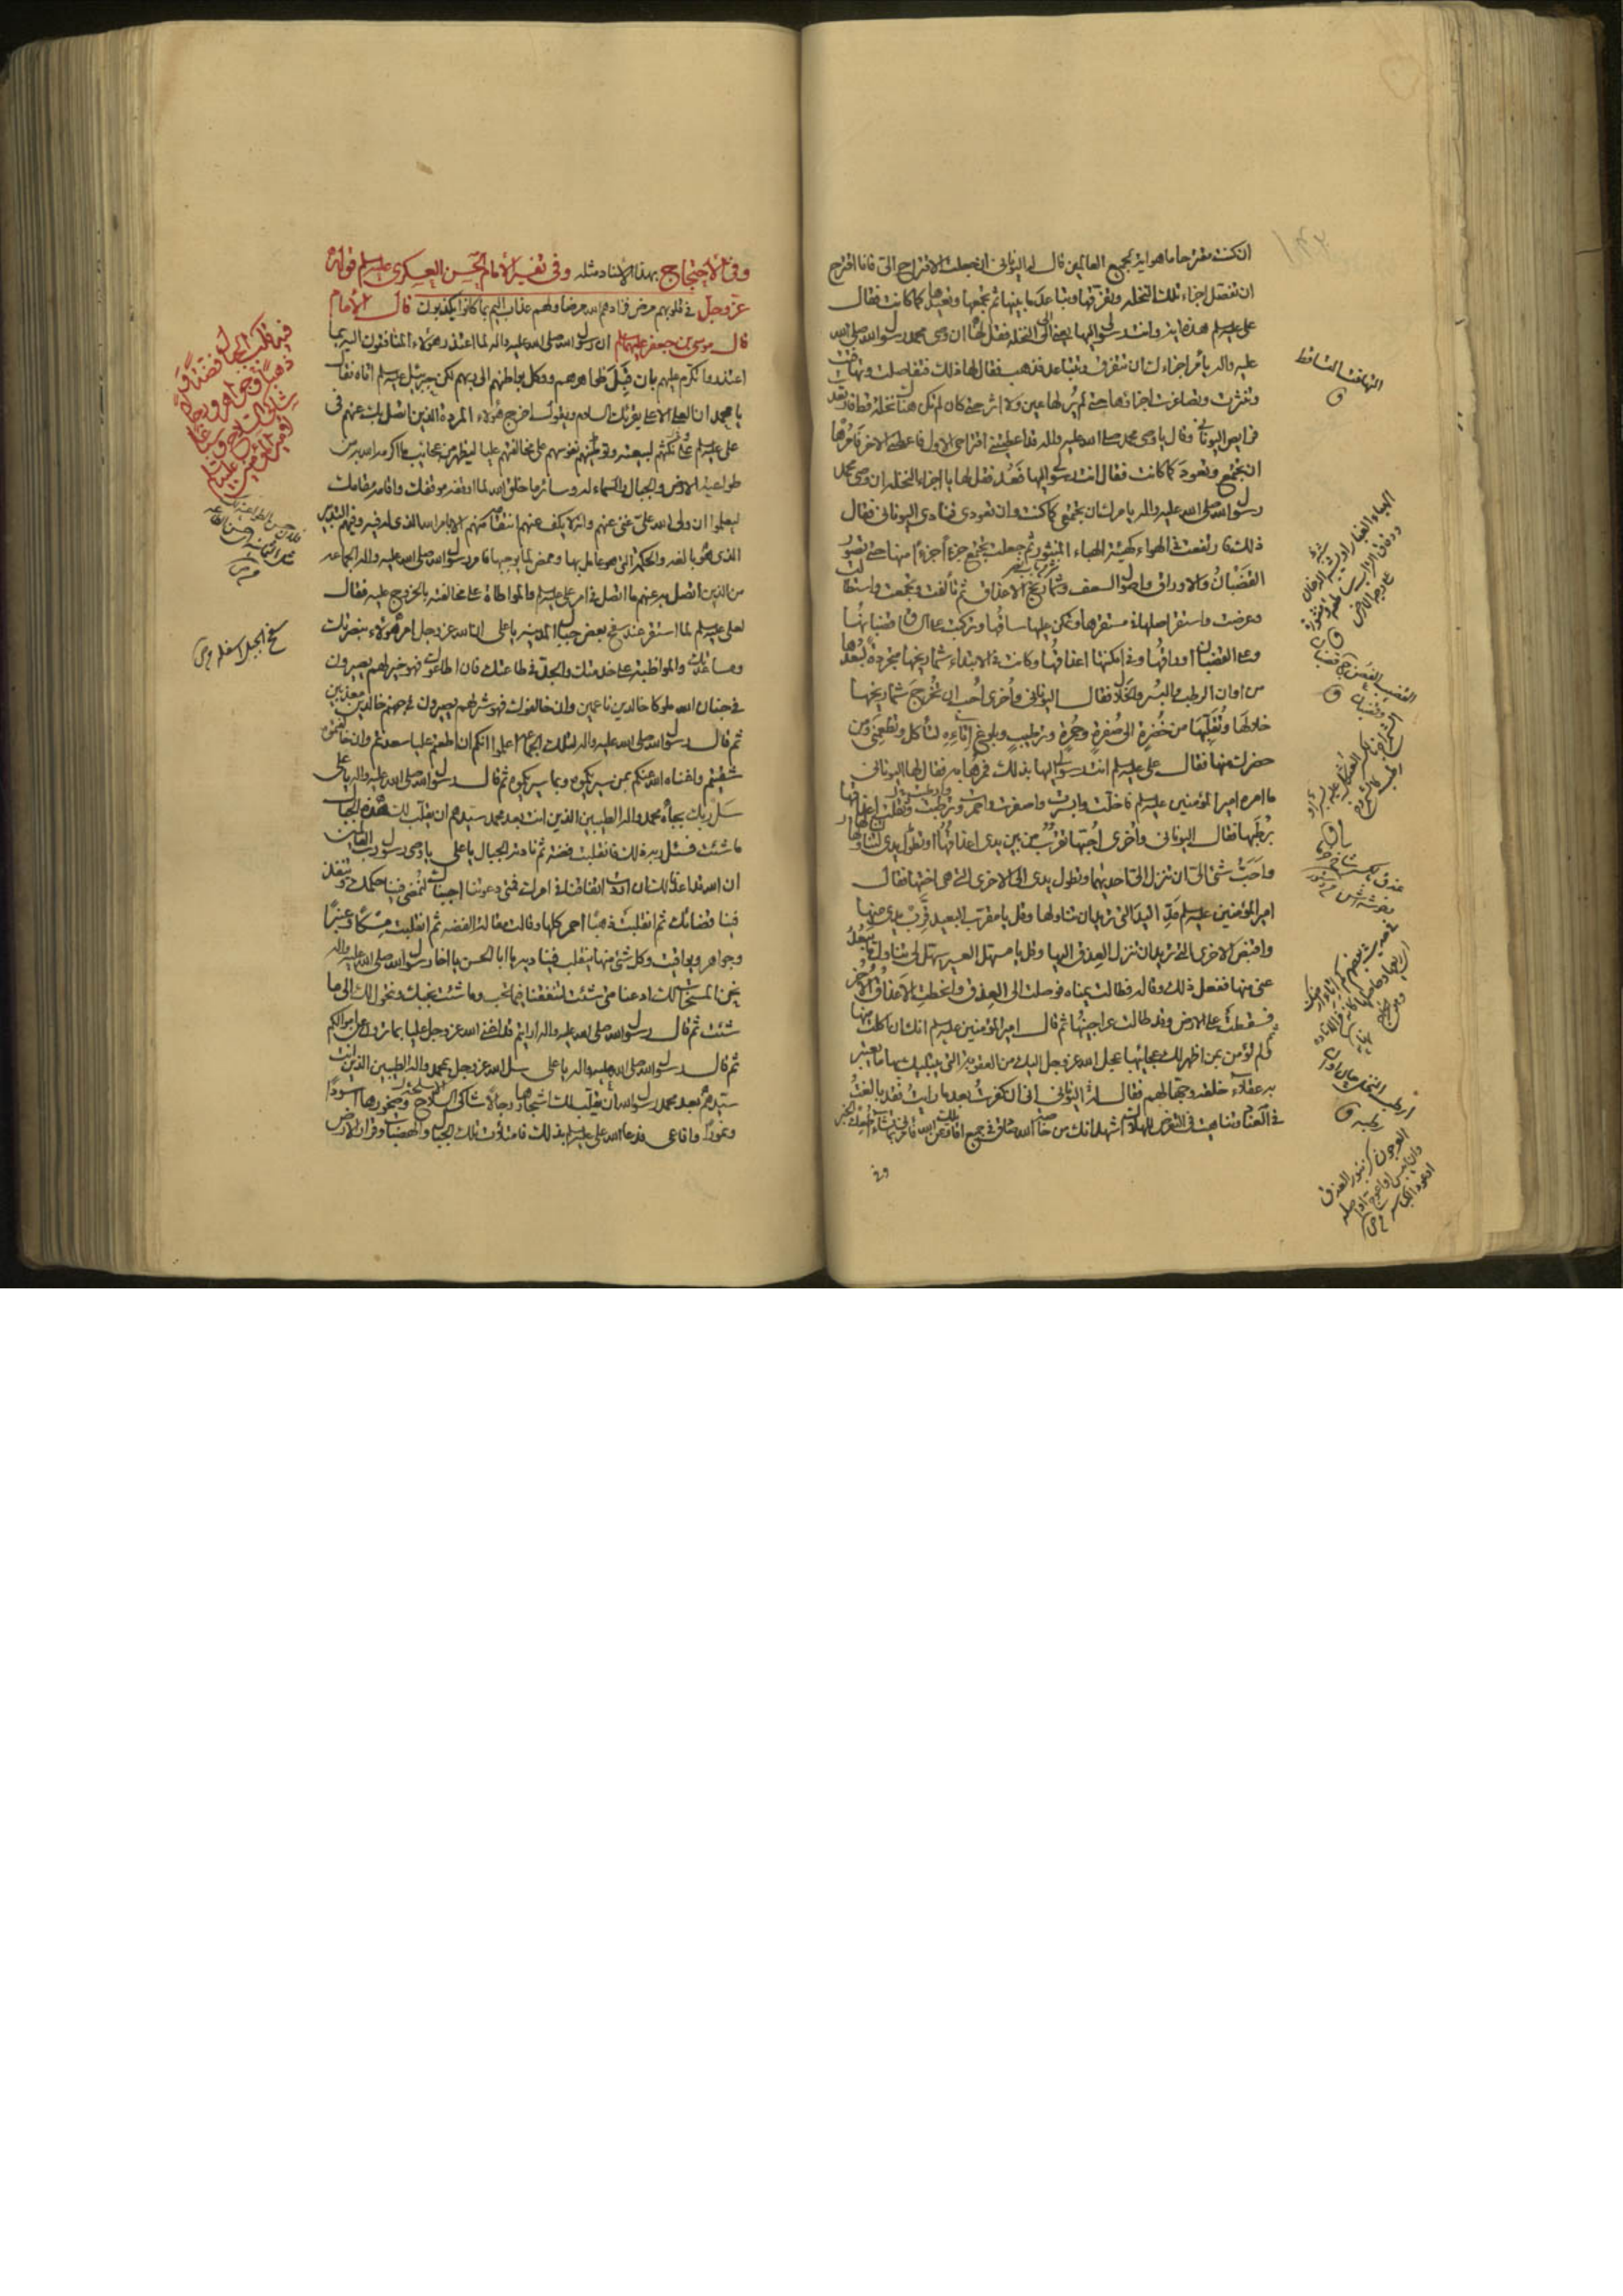 ان كنت مقترحا ما هو اية لجميع العالمين قال له اليوناني ان جعلت الاقتراح الي فانا اقترح
ان تفصل اجزاء تلك النخلة وتفرقها وتباعد ما بينها ثم تجمعها وتعيدها كما كانت فقال
علي عليه السلم هذه اية وانت رسولي اليها يعني الى النخلة فقل لها ان وصي محمد رسول الله صلى الله
عليه واله يأمر اجزاءك ان تتفرق وتتباعد فذهب فقال لها ذلك فتفاصلت وتهافتت
وتنثرت وتصاغرت اجزاؤها حتى لم ير لها عين ولا اثر حتى كان لم تكن هناك نخلة قط فارتعدت
فرايص اليوناني وقال يا وصي محمد صلى الله عليه واله قد اعطيتني اقتراحي الاول فاعطني الاخر فأمرها
ان تجتمع وتعود كما كانت فقال انت رسولي اليها فعد فقل لها يا اجزاء النخلة ان وصي محمد
رسول الله صلى الله عليه واله يامرك ان تجتمعي كما كنت وان تعودي فنادى اليوناني فقال
ذلك فارتفعت في الهواء كهيئة الهباء المنثور ثم جعلت تجتمع جزءا جزءا منها حتى تصور لها
القضبان والاوراق واصول السعف وشماريخ الاعذاق ثم تألفت وتجمعت واستطالت
وعرضت واستقر اصلها في مستقرها وتمكن عليها ساقها وتركب على الساق قضبانها
وعلى القضبان اوراقها وفي امكنتها اعذاقها وكانت في الابتداء شماريخها متجردة لبعدها
من اوان الرطب والبسر والخلال فقال اليوناني واخرى احب ان تخرج شماريخها
خلالها وتقلبها من خضرة الى صفرة وحمرة وترطيب وبلوغ اناه لتأكل وتطعمني ومن
حضرك منها فقال علي عليه السلم انت رسولي اليها بذلك فمرها به فقال لها اليوناني
ما امره امير المؤمنين عليه السلم فاخلت وابسرت واصفرت واحمرت وترطبت وثقلت اعذاقها
برطبها فقال اليوناني واخرى احبها تقرب من بين يدي اعذاقها او تطول يدي لتناولها
واحب شئ الي ان تنزل الي احديهما وتطول يدي الى الاخرى التي هي اختها فقال
امير المؤمنين عليه السلم مد اليد التي تريد ان تنالها وقل يا مقرب البعيد قرب يدي منها
واقبض الاخرى التي تريد ان تنزل العذق اليها وقل يا مسهل العسير سهل لي تناول ما يبعد
عني منها ففعل ذلك وقاله فطالت يمناه فوصلت الى العذق وانحطت الاعذاق الاخر
فسقطت على الارض وقد طالت عراجينها ثم قال امير المؤمنين عليه السلم انك ان اكلت منها
ثم لم تؤمن بمن اظهر لك عجائبها عجل الله عز وجل اليك من العقوبة التي يبتليك بها ما يعتبر
به عقلاء خلقه وجهالهم فقال له اليوناني اني ان كفرت بعد ما رايت فقد بالغت
في العناد وتناهيت في التعرض للهلاك اشهد انك من خاصة الله صادق في جميع اقاويلك عن الله فأمرني بما تشاء اطعك الخبر
وفي
التهافت التساقط
ق
وفي الاحتجاج بهذا الاسناد مثله وفي تفسير الامام الحسن العسكري عليه السلم قوله
عز وجل في قلوبهم مرض فزادهم الله مرضا ولهم عذاب اليم بما كانوا يكذبون قال الامام
قال موسى بن جعفر عليهما السلم ان رسول الله صلى الله عليه واله لما اعتذر هؤلاء المنافقون اليه بما
اعتذروا تكرم عليهم بان قبل ظواهرهم ووكل بواطنهم الى ربهم لكن جبرئيل عليه السلم اتاه فقال
يا محمد ان العلي الاعلى يقرئك السلام ويقول اخرج هؤلاء المردة الذين اتصل بك عنهم في
علي عليه السلم على نكثهم لبيعته وتوطينهم نفوسهم على مخالفتهم عليا ليظهر من عجائب ما اكرمه الله به من
طواعية الارض والجبال والسماء له وسائر ما خلق الله لما اوقفه موقفك واقامه مقامك
ليعلموا ان ولي الله علي غني عنهم وانه لا يكف عنهم انتقامه منهم الا بامر الله الذي له فيه وفيهم التدبير
الذي هو بالغه والحكمة التي هو عامل بها وممض لما يوجبها فامر رسول الله صلى الله عليه واله الجماعة
من الذين اتصل به عنهم ما اتصل في امر علي عليه السلم والمواطاة على مخالفته بالخروج عليه فقال
لعلي عليه السلم لما استقر عند سفح بعض جبال المدينة يا علي ان الله عز وجل امر هؤلاء بنصرتك
ومساعدتك والمواظبة على خدمتك والجد في طاعتك فان اطاعوك فهو خير لهم يصيرون
في جنان الله ملوكا خالدين ناعمين وان خالفوك فهو شر لهم يصيرون في جهنم خالدين معذبين
ثم قال رسول الله صلى الله عليه واله لتلك الجماعة اعلموا انكم ان اطعتم عليا سعدتم وان خالفتموه
شقيتم واغناه الله عنكم بمن سيريكموه وبما سيريكموه ثم قال رسول الله صلى الله عليه واله يا علي
سل ربك بجاه محمد واله الطيبين الذين انت بعد محمد سيدهم ان يقلب لك هذه الجبال
ما شئت فسئل ربه ذلك فانقلبت فضة ثم نادته الجبال يا علي يا وصي رسول رب العالمين
ان الله قد اعدنا لك ان اردت انفاقنا في امرك فمتى دعوتنا اجبناك لتمضي فينا حكمك وتنفذ
فينا قضائك ثم انقلبت ذهبا احمر كلها وقالت مقالة الفضة ثم انقلبت مسكا وعنبرا
وجواهر ويواقيت وكل شئ منها ينقلب فيناديه يا ابا الحسن يا اخا رسول الله صلى الله عليه واله
نحن المسخرات لك ادعنا متى شئت لتنفقنا فيما تحب وما شئت نجبك ونتحول لك الى ما
شئت ثم قال رسول الله صلى الله عليه واله ارايتم قد اغنى الله عز وجل عليا بما ترون عن اموالكم
ثم قال رسول الله صلى الله عليه واله يا علي سل الله عز وجل بمحمد واله الطيبين الذين انت
سيدهم بعد محمد رسول الله ان يقلب لك اشجارها رجالا شاكي السلاح وصخورها اسودا
ونمورا وافاعي فدعا الله علي عليه السلم بذلك فامتلأت تلك الجبال والهضاب وقرار الارض
سفح الجبل اسفله